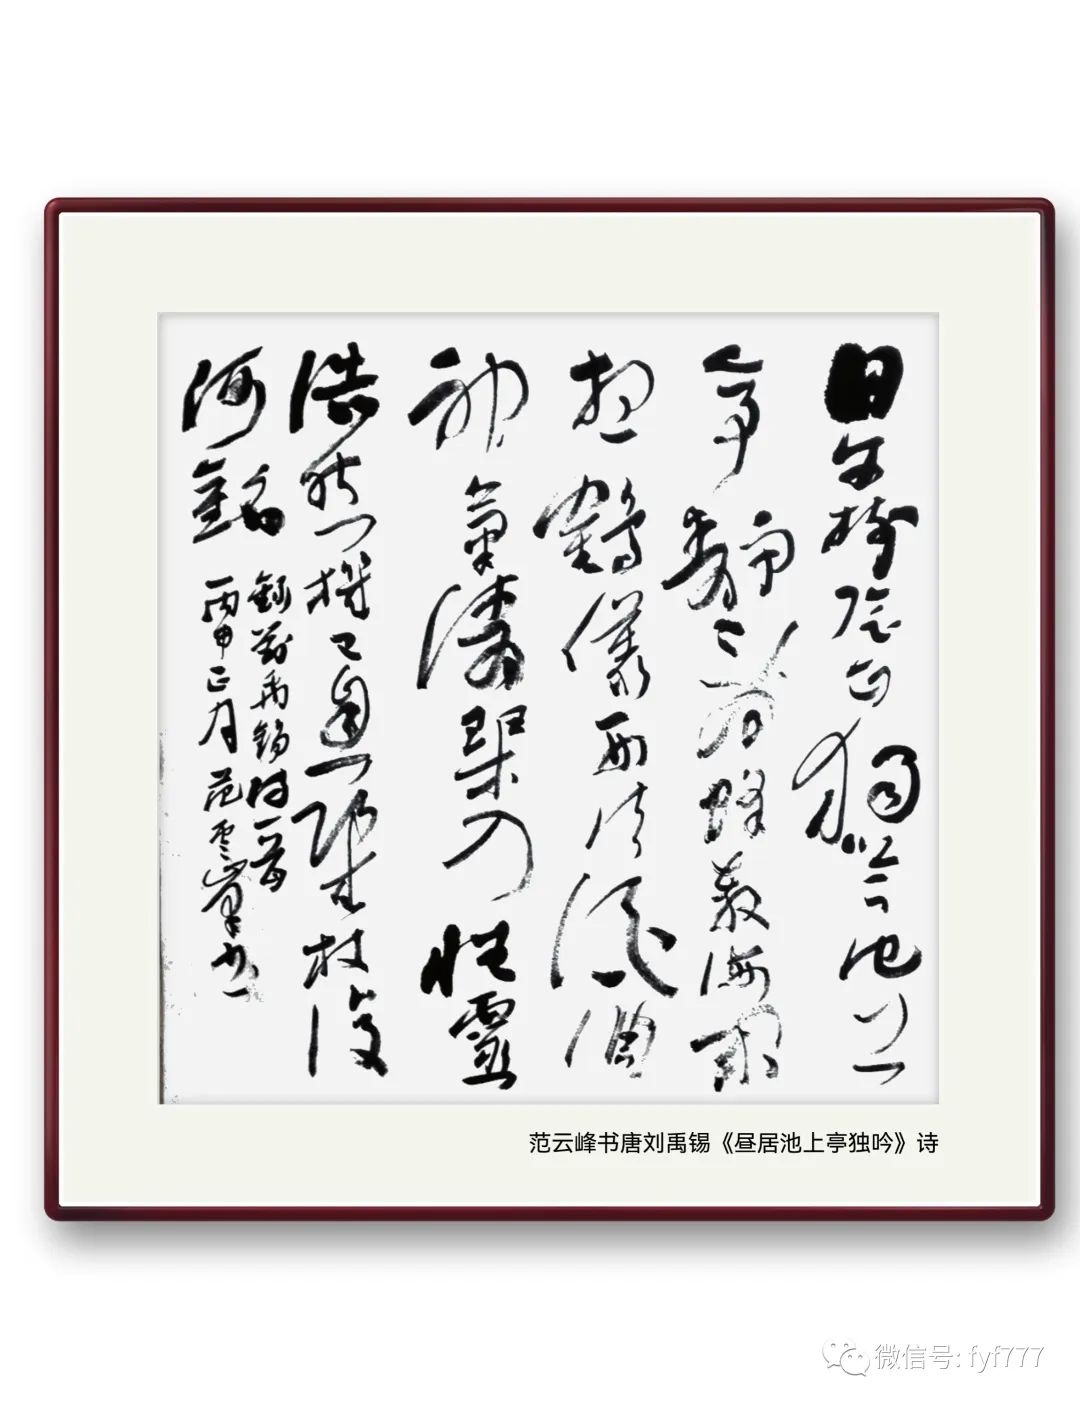 日午樹陰正獨吟池上
亭靜看蜂教誨閑
想鶴儀形法酒調
神氣清琴入性靈
浩然機已息几杖復
何銘
錄劉禹錫詩一首
丙申正月范雲峰書
范云峰书唐刘禹锡《昼居池上亭独吟》诗
微信号: fyf777